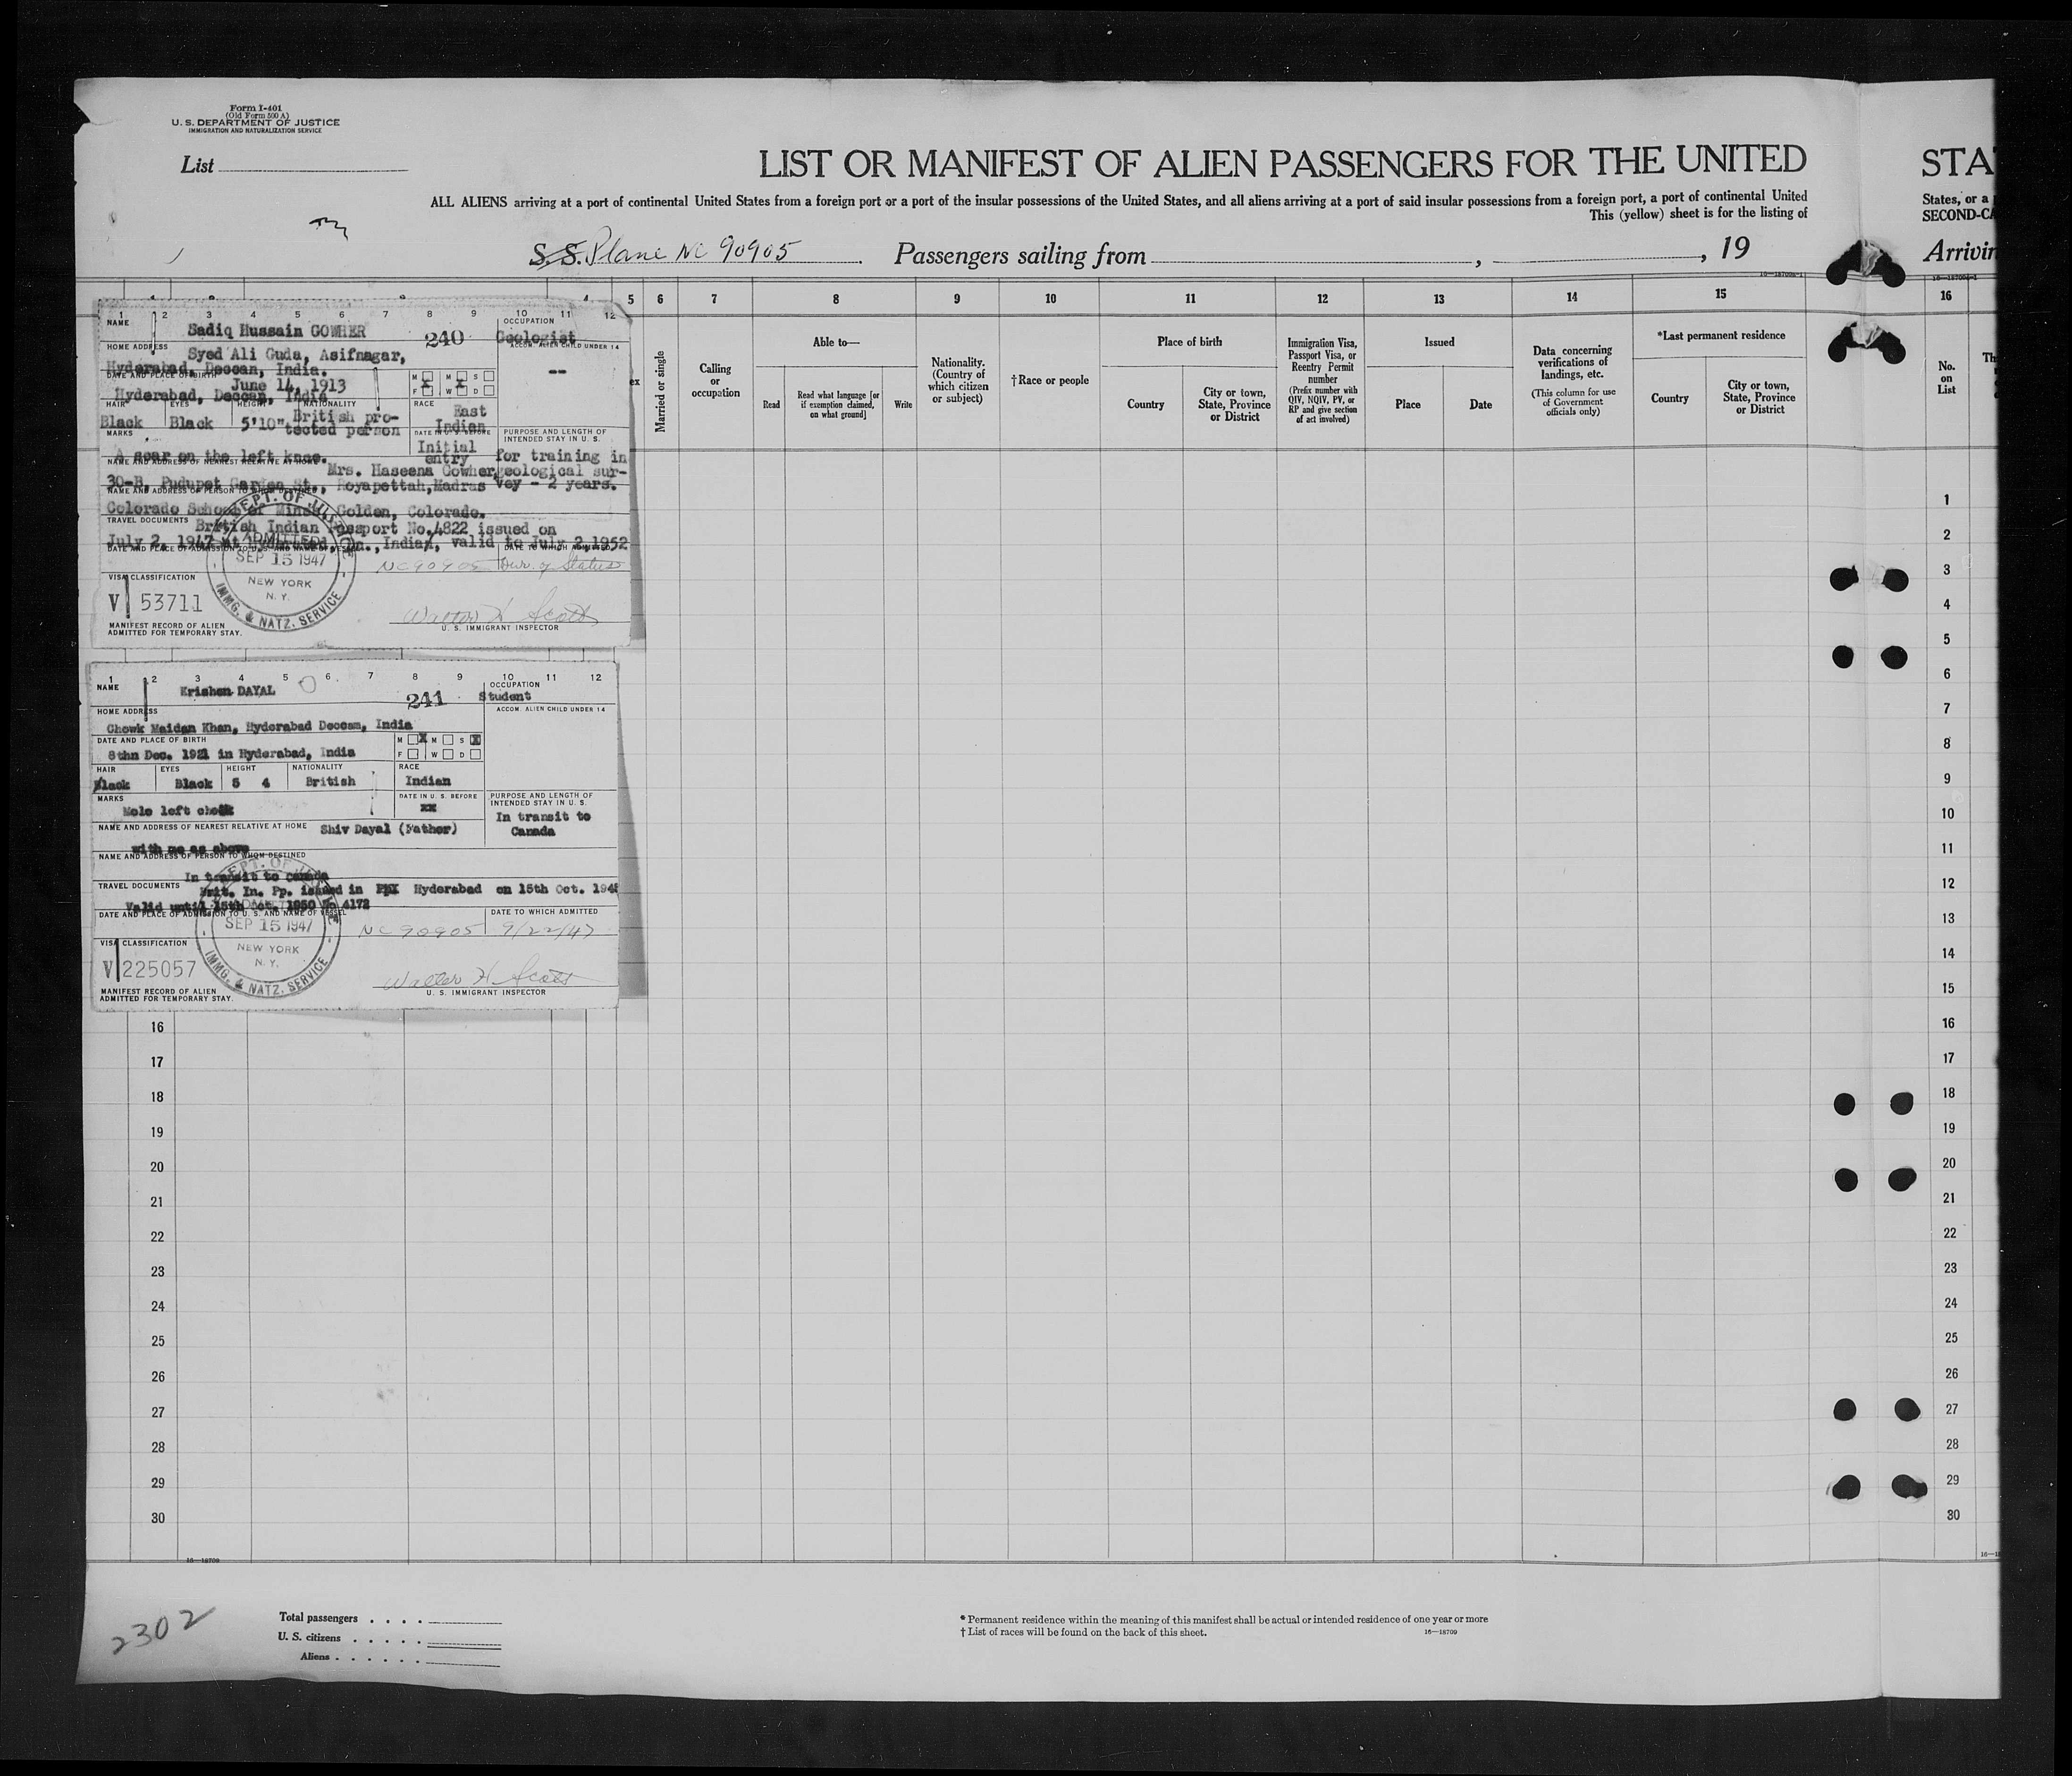 Form I-401
(Old Form 500 A)
U. S. DEPARTMENT OF JUSTICE
IMMIGRATION AND NATURALIZATION SERVICE
List
LIST OR MANIFEST OF ALIEN PASSENGERS FOR THE UNITED
STA
ALL ALIENS arriving at a port of continental United States from a foreign port or a port of the insular possessions of the United States, and all aliens arriving at a port of said insular possessions from a foreign port, a port of continental United
States, or a
This (yellow) sheet is for the listing of
SECOND-CA
S. S. Plane NC 90905 Passengers sailing from , , 19
Arrivin
5 6 7 8 9 10 11 12 13 14 15 16
Married or single
Calling or occupation
Able to—
Read
Read what language [or if exemption claimed, on what ground]
Write
Nationality. (Country of which citizen or subject)
†Race or people
Place of birth
Country
City or town, State, Province or District
Immigration Visa, Passport Visa, or Reentry Permit number
(Prefix number with QIV, NQIV, PV, or RP and give section of act involved)
Issued
Place
Date
Data concerning verifications of landings, etc.
(This column for use of Government officials only)
*Last permanent residence
Country
City or town, State, Province or District
No. on List
1 2 3 4 5 6 7 8 9 10 11 12
NAME
Sadiq Hussain GOWHER
240
OCCUPATION
Geologist
HOME ADDRESS
ACCOM. ALIEN CHILD UNDER 14
Syed Ali Guda, Asifnagar,
Hyderabad, Deccan, India.
--
DATE AND PLACE OF BIRTH
June 14, 1913
M X M X S
F W D
Hyderabad, Deccan, India
HAIR EYES HEIGHT NATIONALITY RACE
Black Black 5'10" British pro-
tected person
East Indian
MARKS
DATE IN U. S. BEFORE
PURPOSE AND LENGTH OF INTENDED STAY IN U. S.
Initial entry
A scar on the left knee.
for training in
NAME AND ADDRESS OF NEAREST RELATIVE AT HOME
Mrs. Haseena Gowher, geological sur-
30-B, Pudupet Garden St., Royapettah, Madras vey - 2 years.
NAME AND ADDRESS OF PERSON TO WHOM DESTINED
Colorado School of Mines, Golden, Colorado.
TRAVEL DOCUMENTS
British Indian Passport No.4822 issued on
July 2, 1947 at Hyderabad, Dn., India, valid to July 2 1952
DATE AND PLACE OF ADMISSION TO U. S. AND NAME OF VESSEL
DATE TO WHICH ADMITTED
DEPT. OF JUSTICE
ADMITTED
SEP 15 1947
NEW YORK
N. Y.
IMMG. & NATZ. SERVICE
NC 90905 Dur. of Status
VISA CLASSIFICATION
V 53711
Walter H. Scott
U. S. IMMIGRANT INSPECTOR
MANIFEST RECORD OF ALIEN
ADMITTED FOR TEMPORARY STAY.
1 2 3 4 5 6 7 8 9 10 11 12
NAME
Krishen DAYAL
241
OCCUPATION
Student
HOME ADDRESS
ACCOM. ALIEN CHILD UNDER 14
Chowk Maidan Khan, Hyderabad Deccan, India
DATE AND PLACE OF BIRTH
M X M S X
F W D
8thn Dec. 1921 in Hyderabad, India
HAIR EYES HEIGHT NATIONALITY RACE
Black Black 5 4 British Indian
MARKS
DATE IN U. S. BEFORE
xx
PURPOSE AND LENGTH OF INTENDED STAY IN U. S.
Mole left cheek
In transit to
Canada
NAME AND ADDRESS OF NEAREST RELATIVE AT HOME Shiv Dayal (Father)
with me as above
NAME AND ADDRESS OF PERSON TO WHOM DESTINED
In transit to canada
TRAVEL DOCUMENTS
Brit. In. Pp. issued in Hyderabad on 15th Oct. 194
Valid until 15th Oct. 1950 No 4172
DATE AND PLACE OF ADMISSION TO U. S. AND NAME OF VESSEL
DATE TO WHICH ADMITTED
SEP 15 1947
NEW YORK
N. Y.
IMMG. & NATZ. SERVICE
NC 90905 9/22/47
VISA CLASSIFICATION
V 225057
Walter H. Scott
U. S. IMMIGRANT INSPECTOR
MANIFEST RECORD OF ALIEN
ADMITTED FOR TEMPORARY STAY.
1
2
3
4
5
6
7
8
9
10
11
12
13
14
15
16 16
17 17
18 18
19 19
20 20
21 21
22 22
23 23
24 24
25 25
26 26
27 27
28 28
29 29
30 30
16—18709
2302
Total passengers
U. S. citizens
Aliens
* Permanent residence within the meaning of this manifest shall be actual or intended residence of one year or more
† List of races will be found on the back of this sheet.
16—18709